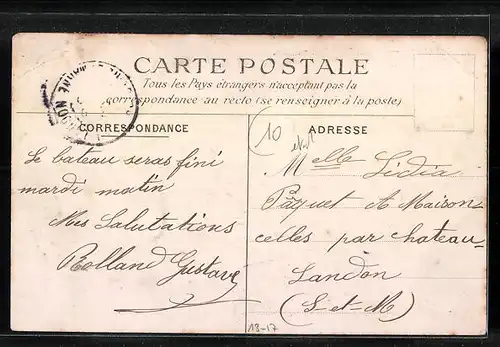 CARTE POSTALE
Tous les Pays étrangers n'acceptant pas la
correspondance au recto (se renseigner à la poste)
CORRESPONDANCE
Le bateau seras fini
mardi matin
Mes Salutations
Rolland Gustave
ADRESSE
10
Melle Lidia
Paquet A Maison-
celles par chateau-
Landon
(S-et-M)
13-17